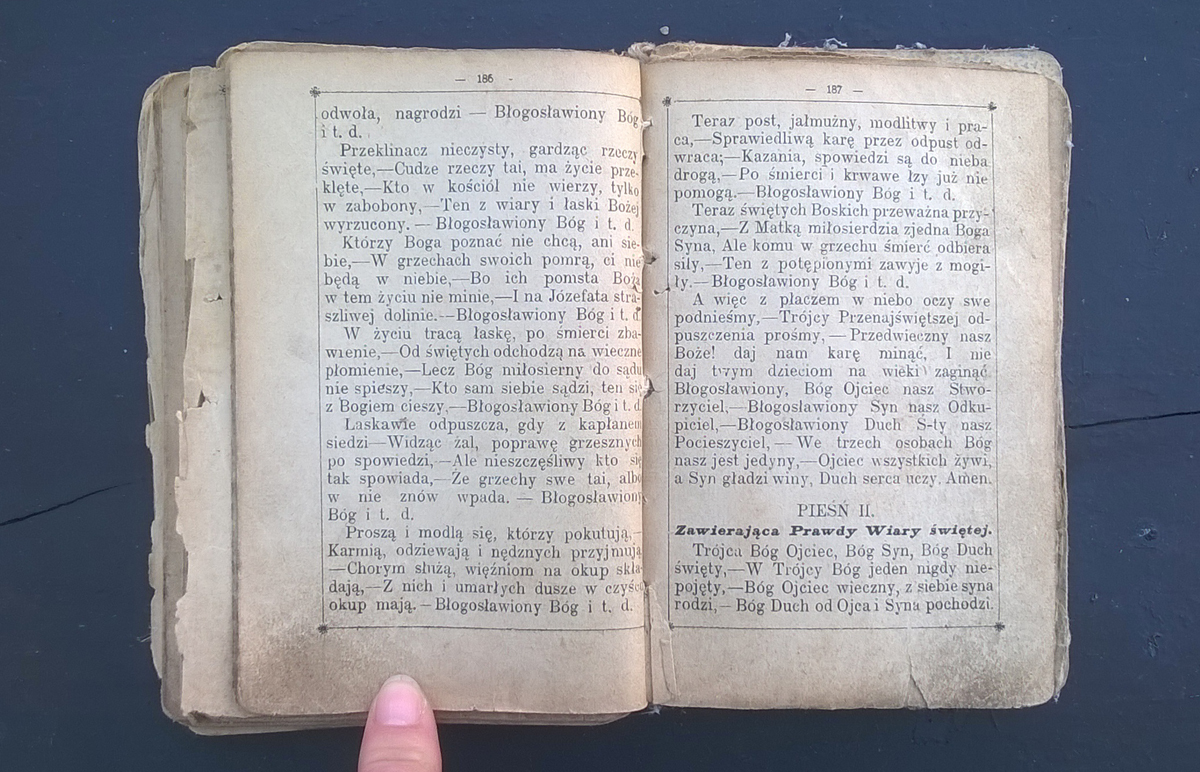 — 186 -
odwoła, nagrodzi — Błogosławiony Bóg
i t. d.
Przeklinacz nieczysty, gardząc rzeczy
święte,—Cudze rzeczy tai, ma życie prze-
klęte,—Kto w kościół nie wierzy, tylko
w zabobony,—Ten z wiary i łaski Bożej
wyrzucony. — Błogosławiony Bóg i t. d.
Którzy Boga poznać nie chcą, ani sie-
bie,—W grzechach swoich pomrą, ci nie
będą w niebie,—Bo ich pomsta Boża
w tem życiu nie minie,—I na Józefata stra-
szliwej dolinie.—Błogosławiony Bóg i t. d
W życiu tracą łaskę, po śmierci zba-
wienie,—Od świętych odchodzą na wieczne
płomienie,—Lecz Bóg miłosierny do sądu
nie spieszy,—Kto sam siebie sądzi, ten się
z Bogiem cieszy,—Błogosławiony Bóg i t. d.
Łaskawie odpuszcza, gdy z kapłanem
siedzi—Widząc żal, poprawę grzesznych
po spowiedzi,—Ale nieszczęśliwy kto się
tak spowiada,—Że grzechy swe tai, albo
w nie znów wpada. — Błogosławiony
Bóg i t. d.
Proszą i modlą się, którzy pokutują,—
Karmią, odziewają i nędznych przyjmują
—Chorym służą, więźniom na okup skła-
dają,—Z nich i umarłych dusze w czyścu
okup mają.—Błogosławiony Bóg i t. d.
— 187 —
Teraz post, jałmużny, modlitwy i pra-
ca,—Sprawiedliwą karę przez odpust od-
wraca;—Kazania, spowiedzi są do nieba
drogą,—Po śmierci i krwawe łzy już nie
pomogą.—Błogosławiony Bóg i t. d.
Teraz świętych Boskich przeważna przy-
czyna,—Z Matką miłosierdzia zjedna Boga
Syna, Ale komu w grzechu śmierć odbiera
siły,—Ten z potępionymi zawyje z mogi-
ły.—Błogosławiony Bóg i t. d.
A więc z płaczem w niebo oczy swe
podnieśmy,—Trójcy Przenajświętszej od-
puszczenia prośmy,—Przedwieczny nasz
Boże! daj nam karę minąć, I nie
daj twym dzieciom na wieki zaginąć
Błogosławiony, Bóg Ojciec nasz Stwo-
rzyciel,—Błogosławiony Syn nasz Odku-
piciel,—Błogosławiony Duch Ś-ty nasz
Pocieszyciel,—We trzech osobach Bóg
nasz jest jedyny,—Ojciec wszystkich żywi,
a Syn gładzi winy, Duch serca uczy. Amen.
PIEŚŃ II.
Zawierająca Prawdy Wiary świętej.
Trójca Bóg Ojciec, Bóg Syn, Bóg Duch
święty,—W Trójcy Bóg jeden nigdy nie-
pojęty,—Bóg Ojciec wieczny, z siebie syna
rodzi,—Bóg Duch od Ojca i Syna pochodzi.